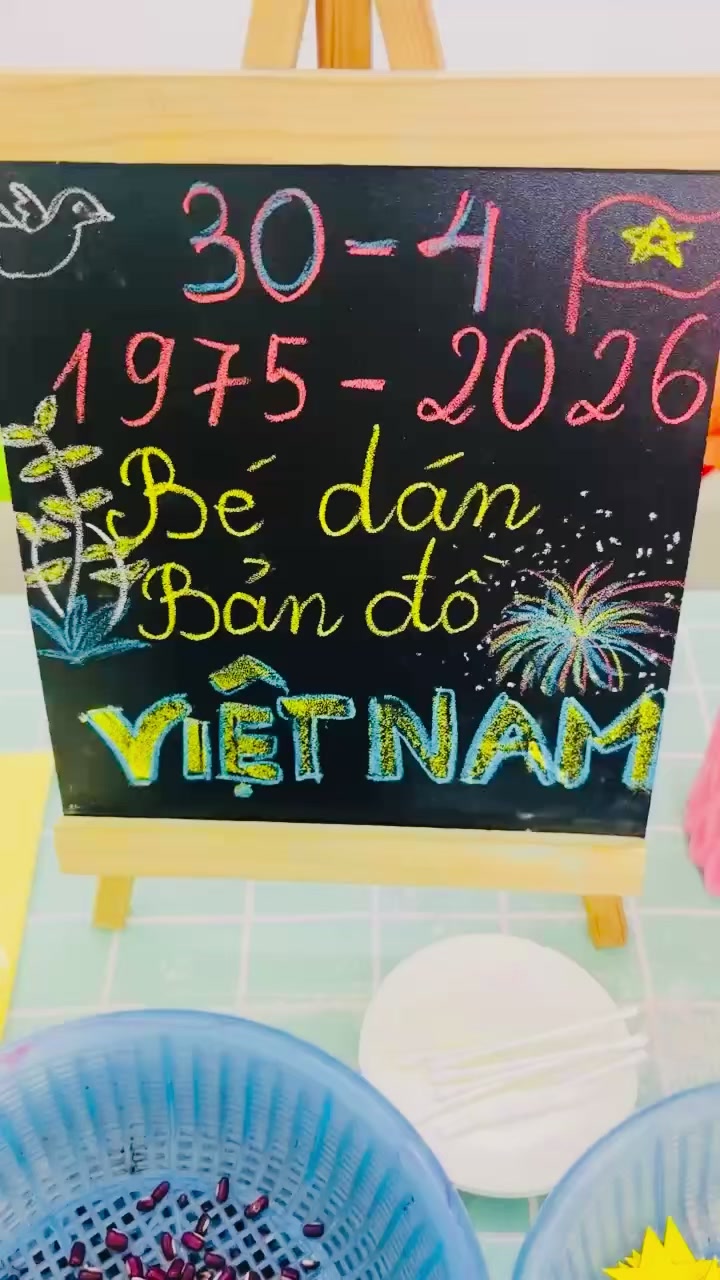 30-4
1975-2026
Bé dán
Bản đồ
VIỆT NAM